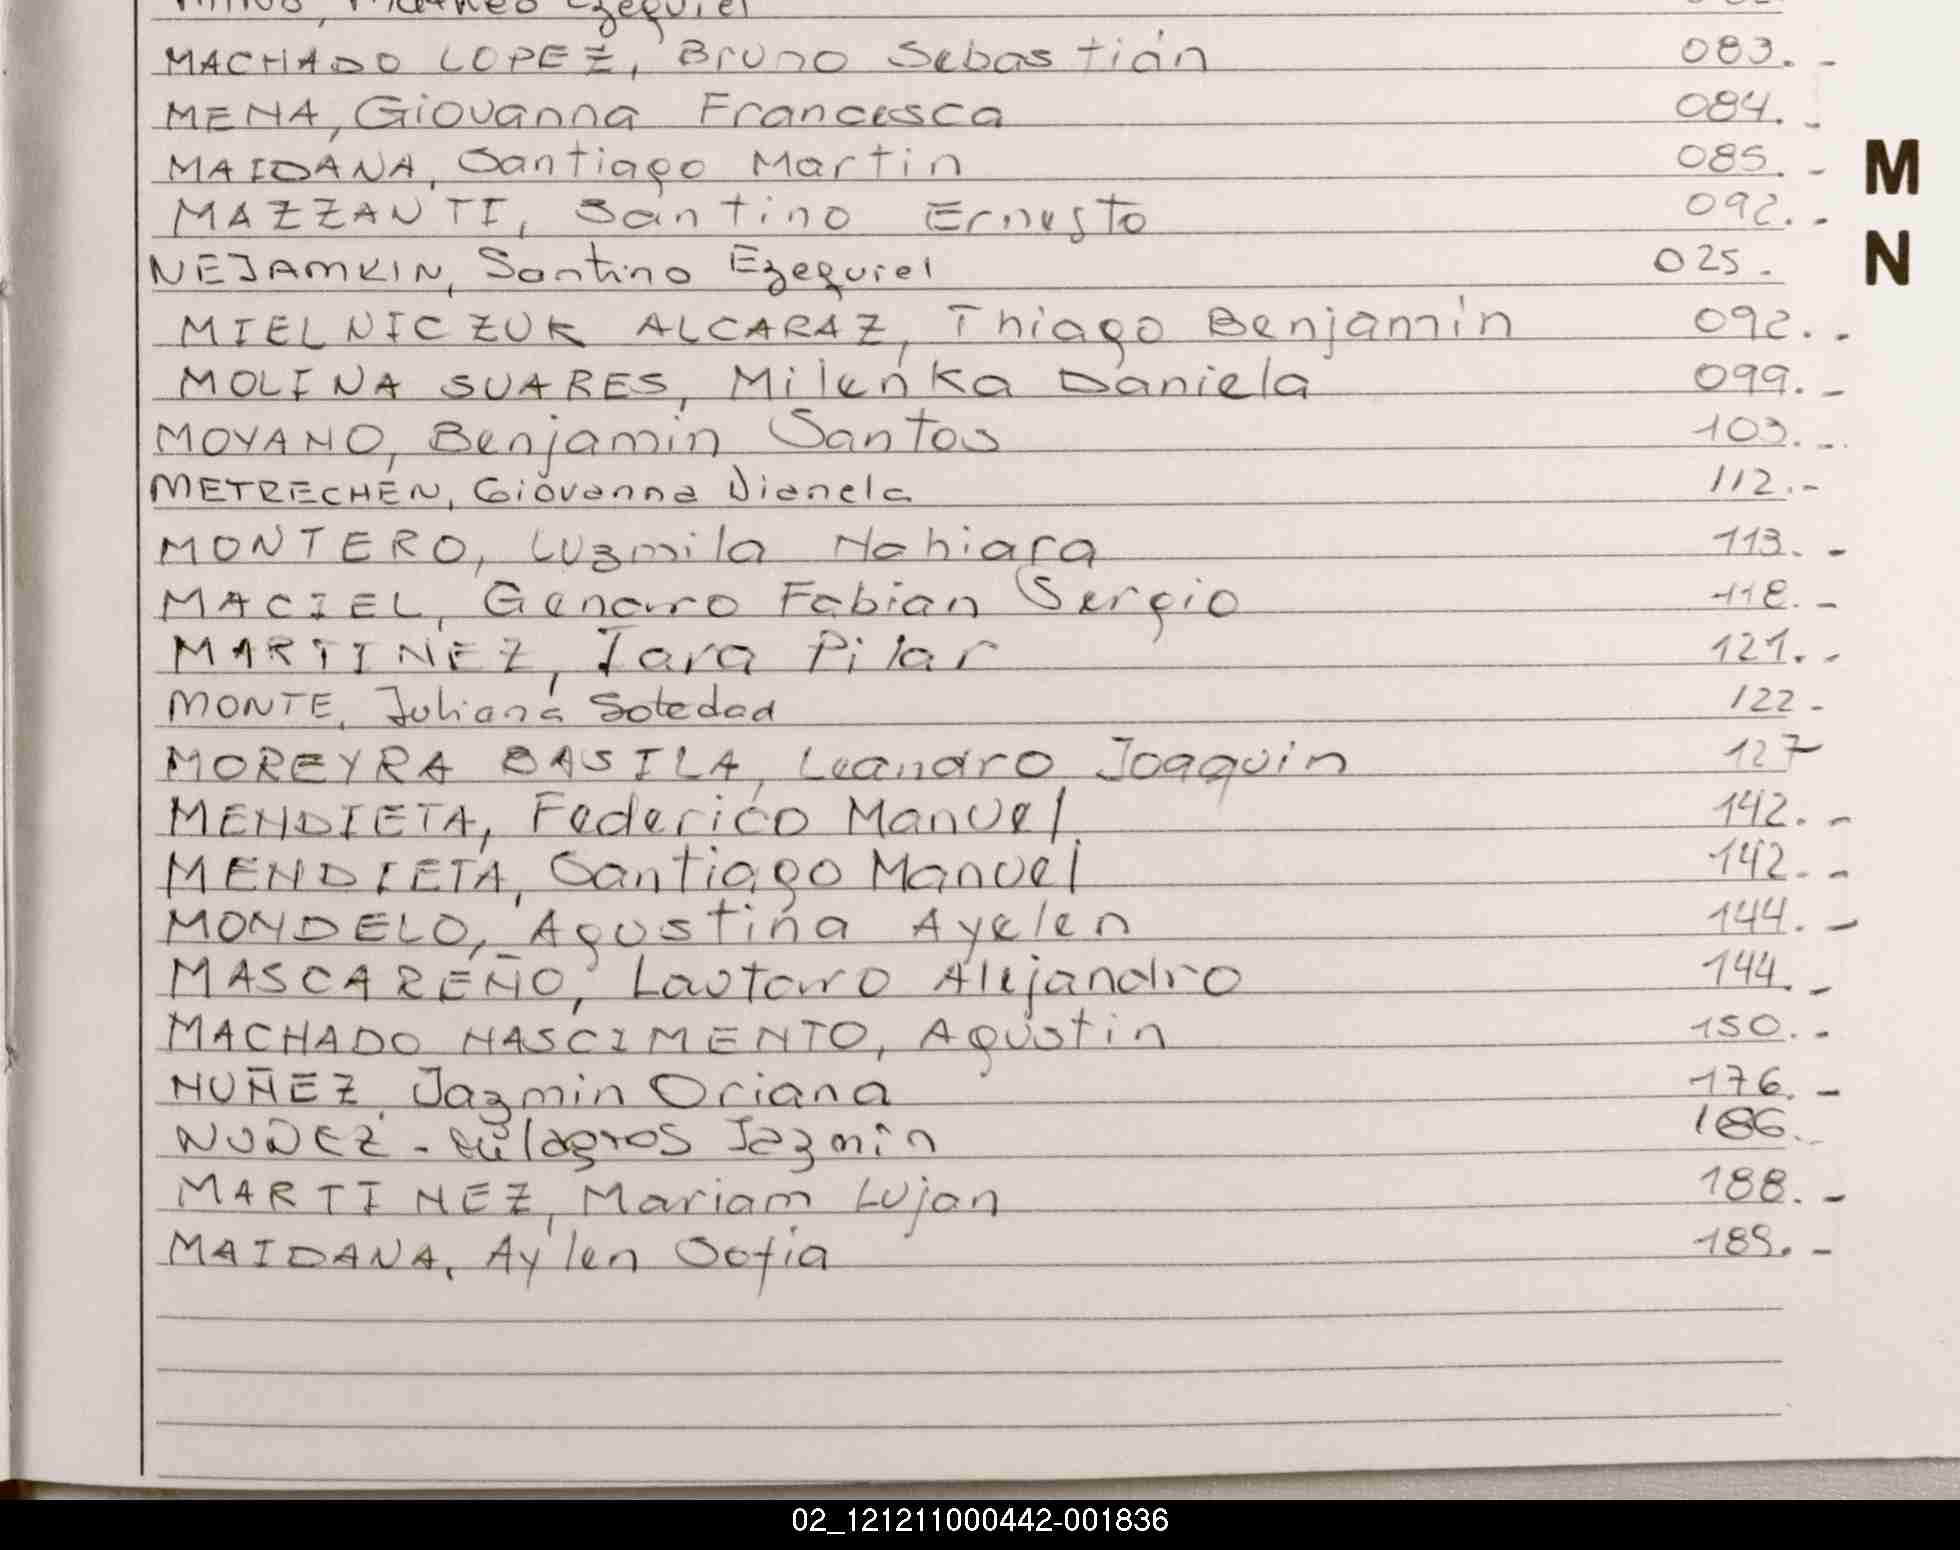 Ezequiel
MACHADO LOPEZ, Bruno Sebastián 083.-
MENA, Giovanna Francesca 084.-
MAIDANA, Santiago Martin 085.-
MAZZANTI, Santino Ernesto 092.-
NEJAMKIN, Santino Ezequiel 025.
MIELNICZUK ALCARAZ, Thiago Benjamín 092.-
MOLINA SUARES, Milenka Daniela 099.-
MOYANO, Benjamin Santos 103.-
METRECHEN, Giovanna Dianela 112.-
MONTERO, Luzmila Nahiara 113.-
MACIEL, Genaro Fabian Sergio 118.-
MARTINEZ, Iara Pilar 121.-
MONTE, Juliana Soledad 122-
MOREYRA BASILA, Leandro Joaquin 127
MENDIETA, Federico Manuel 142.-
MENDIETA, Santiago Manuel 142.-
MONDELO, Agustina Ayelen 144.-
MASCAREÑO, Lautaro Alejandro 144.-
MACHADO NASCIMENTO, Agustin 150.-
NUÑEZ, Jazmin Oriana 176.-
NUÑEZ - Milagros Jazmin 186.-
MARTINEZ, Mariam Lujan 188.-
MAIDANA, Aylen Sofia 189.-
M
N
02_121211000442-001836